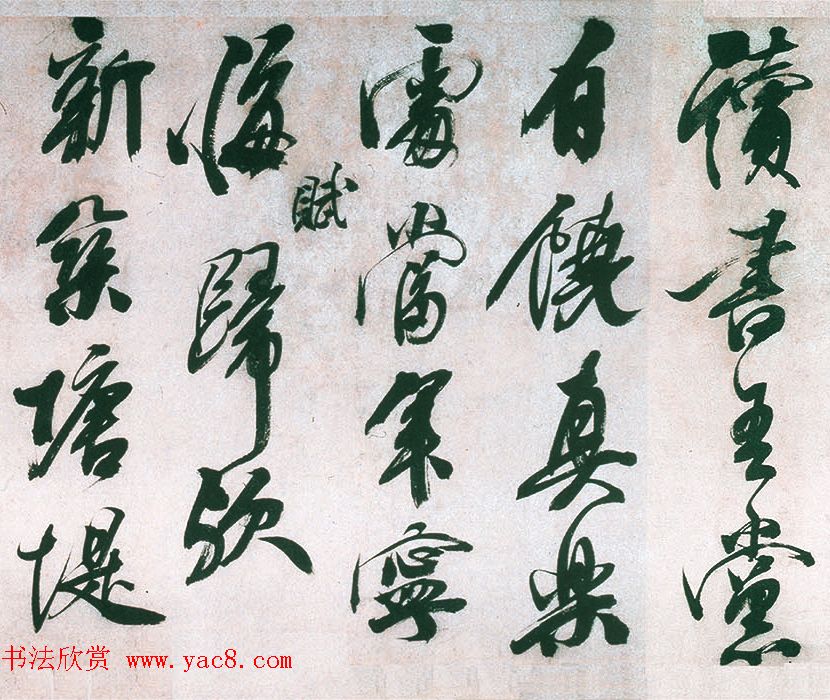 讀書吾黨
有饒真樂
處當年寧
悔賦歸欤
新築塘堤
书法欣赏 www.yac8.com